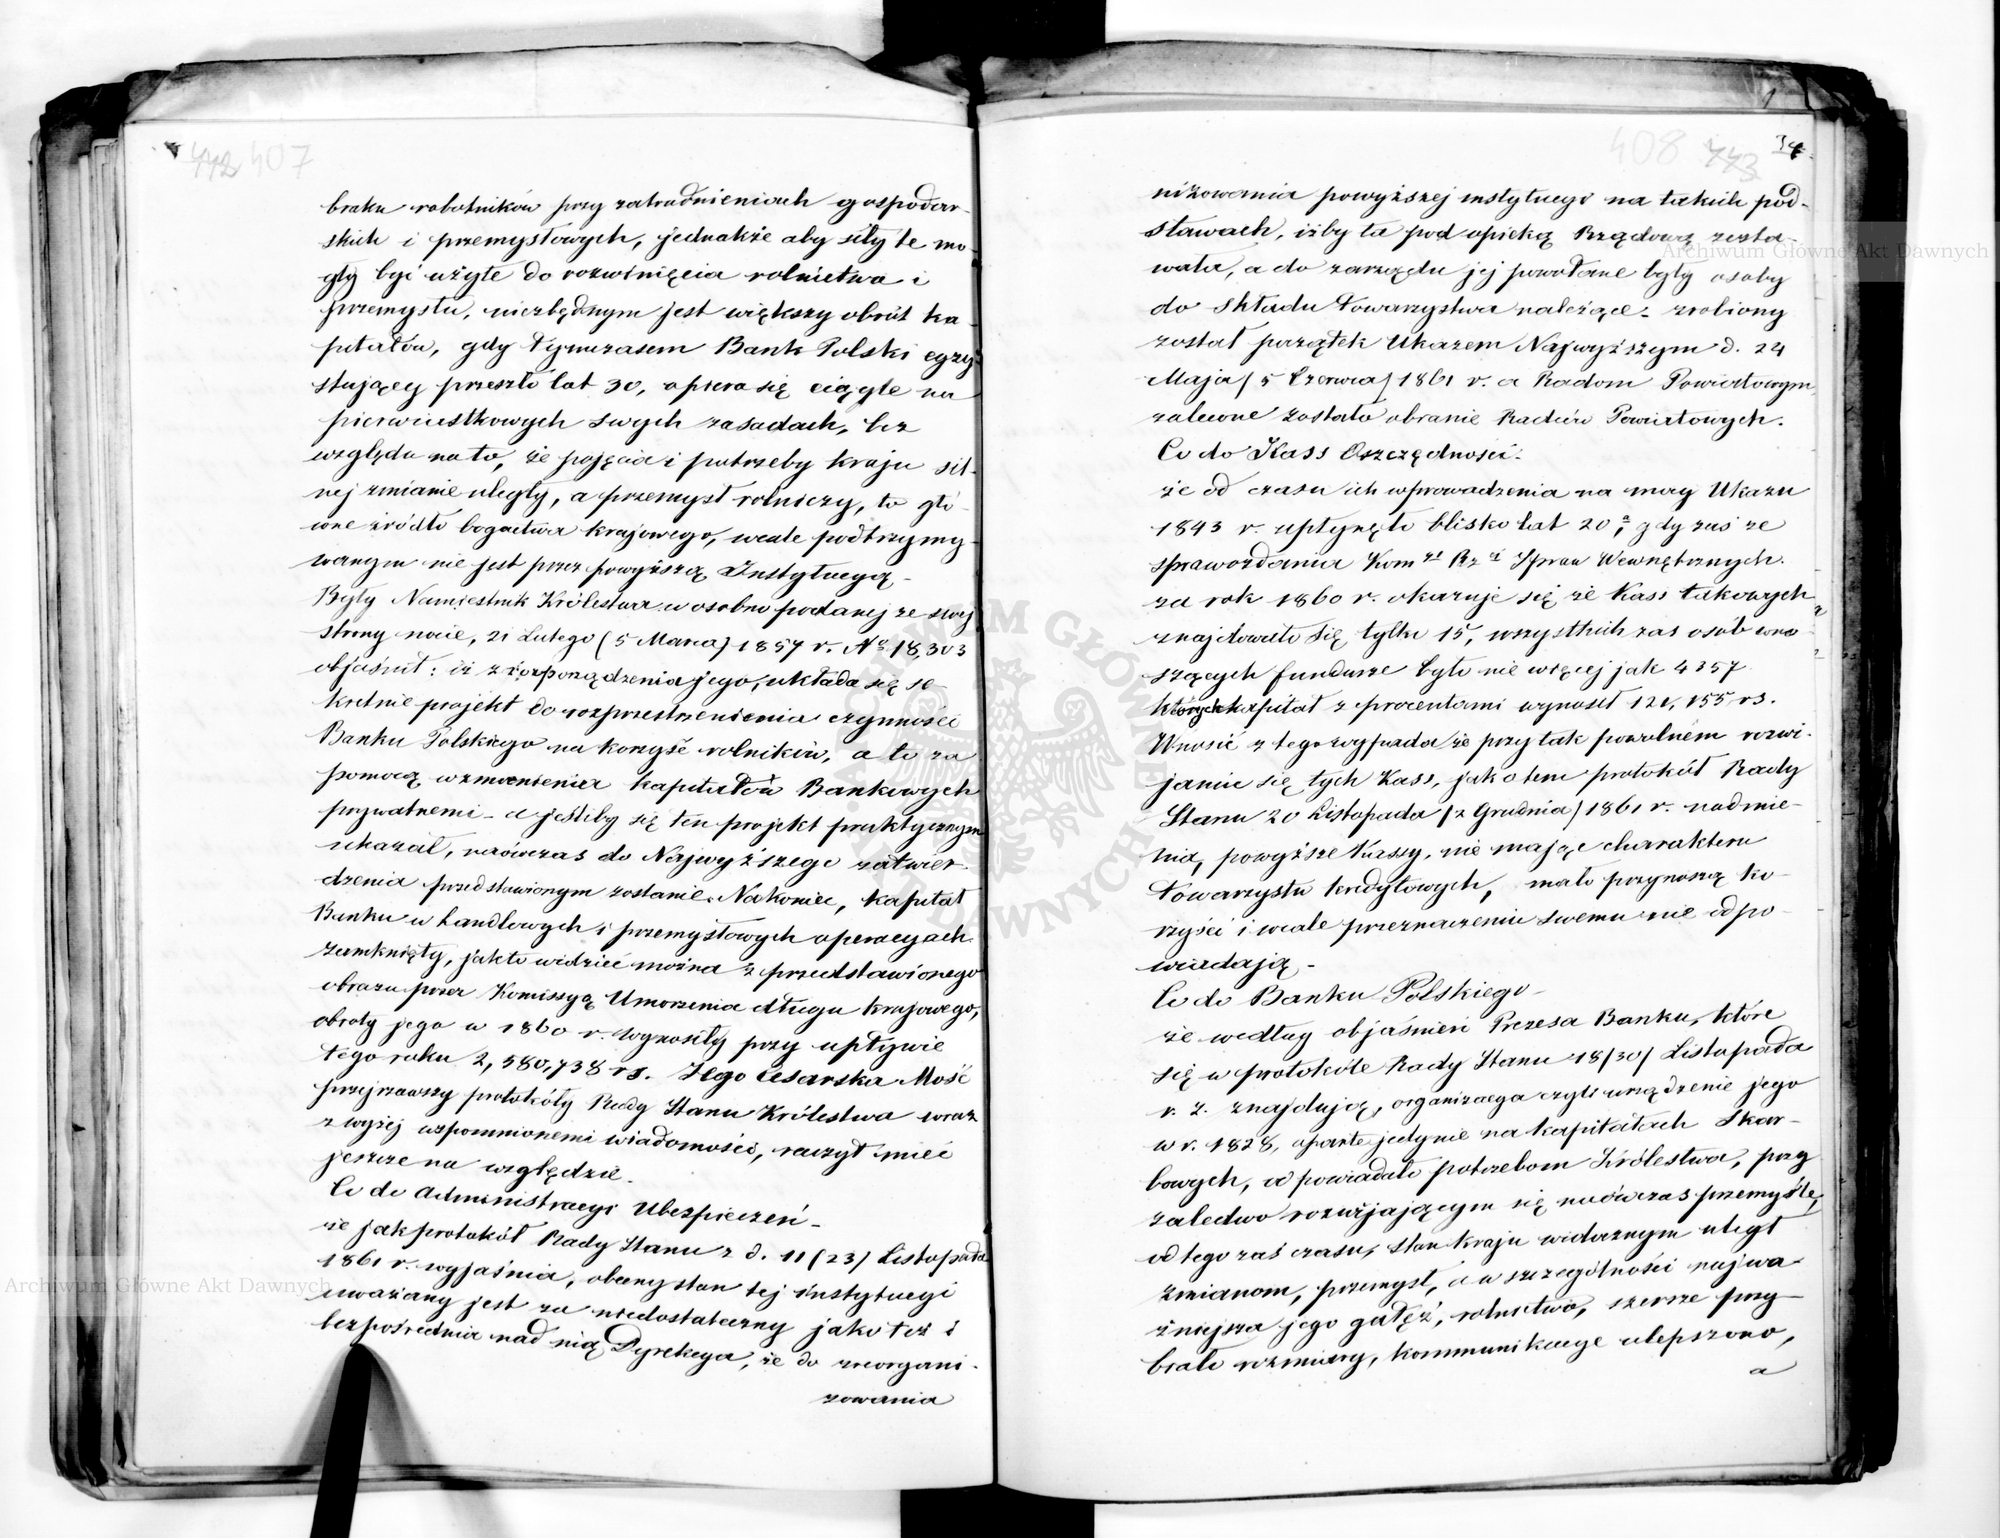 772 407
braku robotników przy zatrudnieniach gospodar-
skich i przemysłowych, jednakże aby siły te mo-
gły być użyte do rozwinięcia rolnictwa i
przemysłu, niezbędnym jest większy obrót ka-
pitałów, gdy tymczasem Bank Polski egzy-
stujący przeszło lat 30, opiera się ciągle na
pierwiastkowych swych zasadach, bez
względu na to, że pojęcia i potrzeby kraju sil-
nej zmianie uległy, a przemysł rolniczy, to głó-
wne źródło bogactwa krajowego, wcale podtrzymy-
wanym nie jest przez powyższą Instytucyą -
Były Namiestnik Królestwa w osobno podanej ze swej
strony nocie, 21 Lutego (5 Marca) 1857 r. No 18,303
objaśnił: iż z rozporządzenia jego, układa się se-
kretnie projekt do rozprzestrzenienia czynności
Banku Polskiego na korzyść rolników, a to za
pomocą wzmocnienia kapitałów Bankowych
prywatnemi - a jeśliby się ten projekt praktycznym
ukazał, naówczas do Najwyższego zatwier-
dzenia przedstawionym zostanie. Nakoniec, kapitał
Banku w handlowych i przemysłowych operacyach
zamknięty, jak to widzieć można z przedstawionego
obrazu przez Komissyą Umorzenia długu krajowego,
obroty jego w 1860 r. wynosiły przy upływie
tego roku 2,580,738 rs. Jego Cesarska Mość
przejrzawszy protokóły Rady Stanu Królestwa wraz
z wyżej wspomnionemi wiadomości, raczył mieć
jeszcze na względzie.
Co do Administracyi Ubezpieczeń -
że jak protokół Rady Stanu z d. 11 (23) Listopada
1861 r. wyjaśnia, obecny stan tej instytucyi
uważany jest za niedostateczny jako też i
bezpośrednia nad nią Dyrekcya, że do zreorgani-
zowania
408 773 34.
nizowania powyższej instytucyi na takich pod-
stawach, iżby ta pod opieką Rządową zosta-
wała, a do zarządu jej powołane były osoby
do składu Towarzystwa należące - zrobiony
został początek Ukazem Najwyższym d. 24
Maja (5 Czerwca) 1861 r. a Radom Powiatowym
zalecone zostało obranie Radców Powiatowych.
Co do Kass Oszczędności.
że od czasu ich wprowadzenia na mocy Ukazu
1843 r. upłynęło blisko lat 20a, gdy zaś ze
sprawozdania Komsi Rzéj Spraw Wewnętrznych.
za rok 1860 r. okazuje się że Kass takowych
znajdowało się tylko 15, wszystkich zaś osób wno-
szących fundusze było nie więcej jak 4357
których kapitał z procentami wynosił 121,155 rs.
Wnosić z tego wypada że przy tak powolném rozwi-
janiu się tych Kass, jak o tem protokół Rady
Stanu 20 Listopada (2 Grudnia) 1861 r. nadmie-
nia, powyższe Kassy, nie mając charakteru
Towarzystw kredytowych, mało przynoszą ko-
rzyści i wcale przeznaczeniu swemu nie odpo-
wiadają -
Co do Banku Polskiego -
że według objaśnień Prezesa Banku, które
się w protokóle Rady Stanu 18/30/ Listopada
r. z. znajdują, organizacya czyli urządzenie jego
w r. 1828, oparte jedynie na kapitałach Skar-
bowych, odpowiadało potrzebom Królestwa, przy
zaledwo rozwijającym się naówczas przemyśle,
od tego zaś czasu, stan kraju widocznym uległ
zmianom, przemysł, a w szczególności najwa-
żniejsza jego gałęź, rolnictwo, szersze przy-
brało rozmiary, kommunikacye ulepszono,
a
Archiwum Główne Akt Dawnych
Archiwum Główne Akt Dawnych
ARCHIWUM GŁÓWNE AKT DAWNYCH